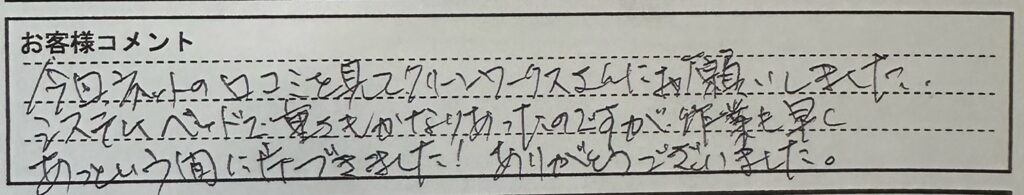 お客様コメント
今回、ネットの口コミを見てクリーンワークスさんにお願いしました。
システムベッドで重さもかなりあったのですが作業も早く
あっという間に片づきました! ありがとうございました。